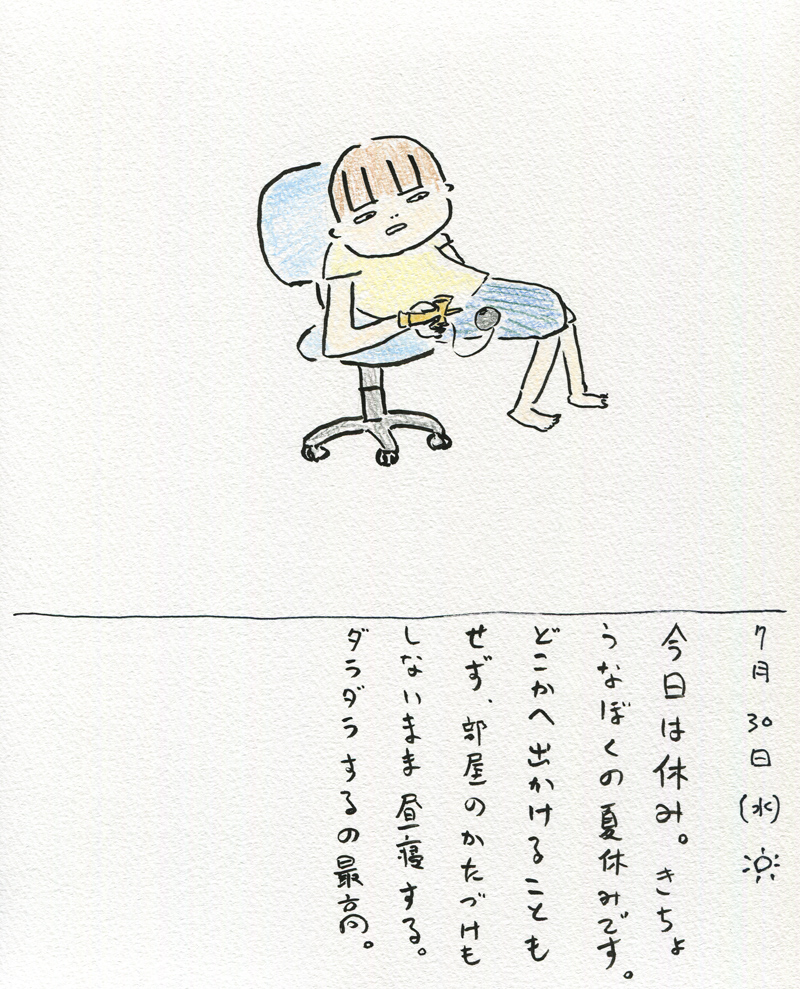 7月30日(水)
今日は休み。きちょ
うなぼくの夏休みです。
どこかへ出かけることも
せず、部屋のかたづけも
しないまま昼寝する。
ダラダラするの最高。